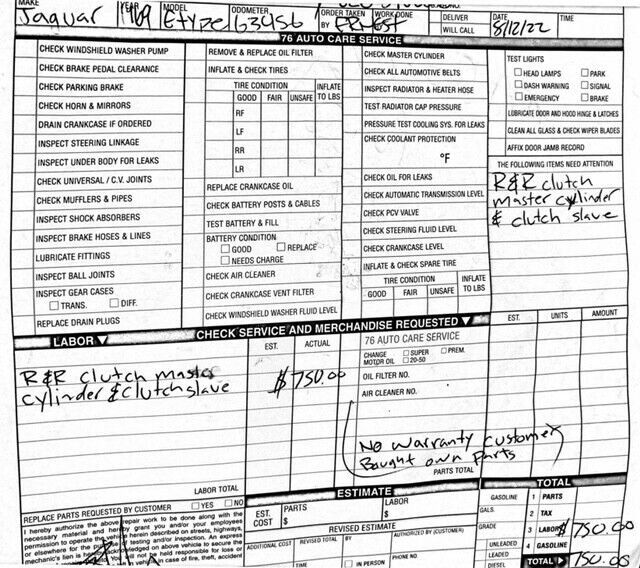 MAKE YEAR MODEL ODOMETER ORDER TAKEN BY WORK DONE DELIVER WILL CALL DATE TIME
Jaguar 1969 E type 63456 ERNEST 8/12/22
76 AUTO CARE SERVICE
CHECK WINDSHIELD WASHER PUMP
CHECK BRAKE PEDAL CLEARANCE
CHECK PARKING BRAKE
CHECK HORN & MIRRORS
DRAIN CRANKCASE IF ORDERED
INSPECT STEERING LINKAGE
INSPECT UNDER BODY FOR LEAKS
CHECK UNIVERSAL / C.V. JOINTS
CHECK MUFFLERS & PIPES
INSPECT SHOCK ABSORBERS
INSPECT BRAKE HOSES & LINES
LUBRICATE FITTINGS
INSPECT BALL JOINTS
INSPECT GEAR CASES
TRANS. DIFF.
REPLACE DRAIN PLUGS
REMOVE & REPLACE OIL FILTER
INFLATE & CHECK TIRES
TIRE CONDITION INFLATE
GOOD FAIR UNSAFE TO LBS
RF
LF
RR
LR
REPLACE CRANKCASE OIL
CHECK BATTERY POSTS & CABLES
TEST BATTERY & FILL
BATTERY CONDITION
GOOD REPLACE
NEEDS CHARGE
CHECK AIR CLEANER
CHECK CRANKCASE VENT FILTER
CHECK WINDSHIELD WASHER FLUID LEVEL
CHECK MASTER CYLINDER
CHECK ALL AUTOMOTIVE BELTS
INSPECT RADIATOR & HEATER HOSE
TEST RADIATOR CAP PRESSURE
PRESSURE TEST COOLING SYS. FOR LEAKS
CHECK COOLANT PROTECTION
°F
CHECK OIL FOR LEAKS
CHECK AUTOMATIC TRANSMISSION LEVEL
CHECK PCV VALVE
CHECK STEERING FLUID LEVEL
CHECK CRANKCASE LEVEL
INFLATE & CHECK SPARE TIRE
TIRE CONDITION INFLATE
GOOD FAIR UNSAFE TO LBS
TEST LIGHTS
HEAD LAMPS PARK
DASH WARNING SIGNAL
EMERGENCY BRAKE
LUBRICATE DOOR AND HOOD HINGE & LATCHES
CLEAN ALL GLASS & CHECK WIPER BLADES
AFFIX DOOR JAMB RECORD
THE FOLLOWING ITEMS NEED ATTENTION
R&R clutch
master cylinder
& clutch slave
LABOR ▼ CHECK SERVICE AND MERCHANDISE REQUESTED ▼
EST. ACTUAL
R&R clutch master
cylinder & clutch slave $750.00
LABOR TOTAL
76 AUTO CARE SERVICE EST. UNITS AMOUNT
CHANGE SUPER PREM.
MOTOR OIL 20-50
OIL FILTER NO.
AIR CLEANER NO.
No warranty customer
Bought own Parts
PARTS TOTAL
REPLACE PARTS REQUESTED BY CUSTOMER YES NO
I hereby authorize the above repair work to be done along with the
necessary material and hereby grant you and/or your employees
ESTIMATE
EST. COST PARTS $ LABOR $
REVISED ESTIMATE
ADDITIONAL COST REVISED TOTAL BY AUTHORIZED BY (CUSTOMER)
TIME IN PERSON PHONE NO.
TOTAL
GASOLINE 1 PARTS
GALS. 2 TAX
GRADE 3 LABOR $750.00
UNLEADED 4 GASOLINE
LEADED
DIESEL TOTAL 750.00